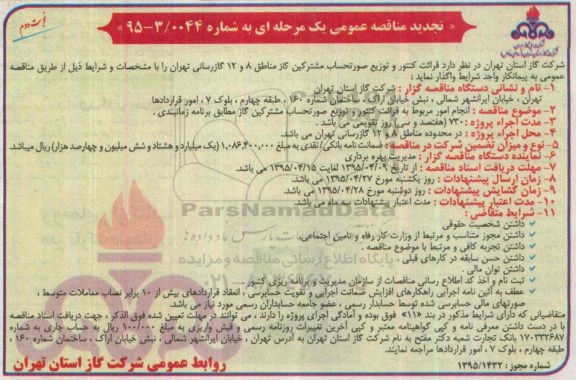 نوبت دوم
« تجدید مناقصه عمومی یک مرحله ای به شماره ۳/۰۰۴۴-۹۵ »
شرکت گاز استان تهران در نظر دارد قرائت کنتور و توزیع صورتحساب مشترکین گاز مناطق ۸ و ۱۲ گازرسانی تهران را با مشخصات و شرایط ذیل از طریق مناقصه
عمومی به پیمانکار واجد شرایط واگذار نماید :
۱- نام و نشانی دستگاه مناقصه گزار : شرکت گاز استان تهران
تهران ، خیابان ایرانشهر شمالی ، نبش خیابان اراک، ساختمان شماره ۱۶۰ ، طبقه چهارم ، بلوک ۷ ، امور قراردادها
۲- موضوع مناقصه : انجام امور مربوط به قرائت کنتور و توزیع صورتحساب مشترکین گاز مطابق برنامه زمانبندی .
۳- مدت اجراء پروژه : ۷۳۰ (هفتصد و سی) روز تقویمی می باشد .
۴- محل اجراء پروژه : در محدوده مناطق ۸ و ۱۲ گازرسانی تهران می باشد.
۵- نوع و میزان تضمین شرکت در مناقصه : ضمانت نامه بانکی/ نقدی به مبلغ ۱,۰۸۶,۴۰۰,۰۰۰ (یک میلیارد و هشتاد و شش میلیون و چهارصد هزار) ریال میباشد.
۶- نماینده دستگاه مناقصه گزار : مدیریت بهره برداری
۷- مهلت دریافت اسناد مناقصه : از تاریخ ۱۳۹۵/۰۴/۰۹ لغایت ۱۳۹۵/۰۴/۱۵ می باشد.
۸- زمان ارسال پیشنهادات : روز یکشنبه مورخ ۱۳۹۵/۰۴/۲۷ می باشد.
۹- زمان گشایش پیشنهادات : روز دوشنبه مورخ ۱۳۹۵/۰۴/۲۸ می باشد.
۱۰- مدت اعتبار پیشنهادات : مدت اعتبار پیشنهادات سه ماه می باشد.
۱۱- شرایط متقاضی :
✓ داشتن شخصیت حقوقی
✓ داشتن مجوز متناسب و مرتبط از وزارت کار، رفاه و تامین اجتماعی.
✓ داشتن تجربه کافی و مرتبط با موضوع مناقصه
✓ داشتن حسن سابقه در کارهای قبلی
✓ داشتن توان مالی .
✓ ثبت نام و اخذ کد اطلاع رسانی مناقصات از سازمان مدیریت و برنامه ریزی کشور ...
✓ عطف به آئین نامه اجرایی راهکارهای افزایش ضمانت اجرایی و تقویت حسابرسی ، انعقاد قراردادهای بیش از ۱۰ برابر نصاب معاملات متوسط ،
صورتهای مالی حسابرسی شده توسط حسابدار رسمی ، عضو جامعه حسابداران رسمی مورد نیاز می باشد.
متقاضیانی که دارای شرایط مذکور در بند «۱۱» فوق بوده و آمادگی اجرای پروژه را دارند ، می توانند در مهلت تعیین شده فوق الذکر ، جهت دریافت اسناد مناقصه
با در دست داشتن معرفی نامه و کپی گواهینامه معتبر و کپی آخرین تغییرات روزنامه رسمی و فیش واریزی به مبلغ ۱۰۰/۰۰۰ ریال به حساب جاری به شماره
۱۷۰۳۳۲۶۸۷ بانک تجارت شعبه دکتر مفتح به نام شرکت گاز استان تهران به آدرس تهران ، خیابان ایرانشهر شمالی ، نبش خیابان اراک ، ساختمان شماره ۱۶۰ ،
طبقه چهارم ، بلوک ۷ ، امور قراردادها مراجعه نمایند.
شماره مجوز : ۱۳۹۵/۱۴۳۲
روابط عمومی شرکت گاز استان تهران
ParsNamadData
پایگاه اطلاع رسانی مناقصه و مزایده